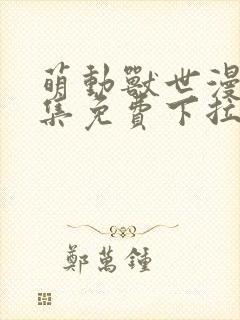 萌動獸世漫
集免費下拉
鄭萬鍾